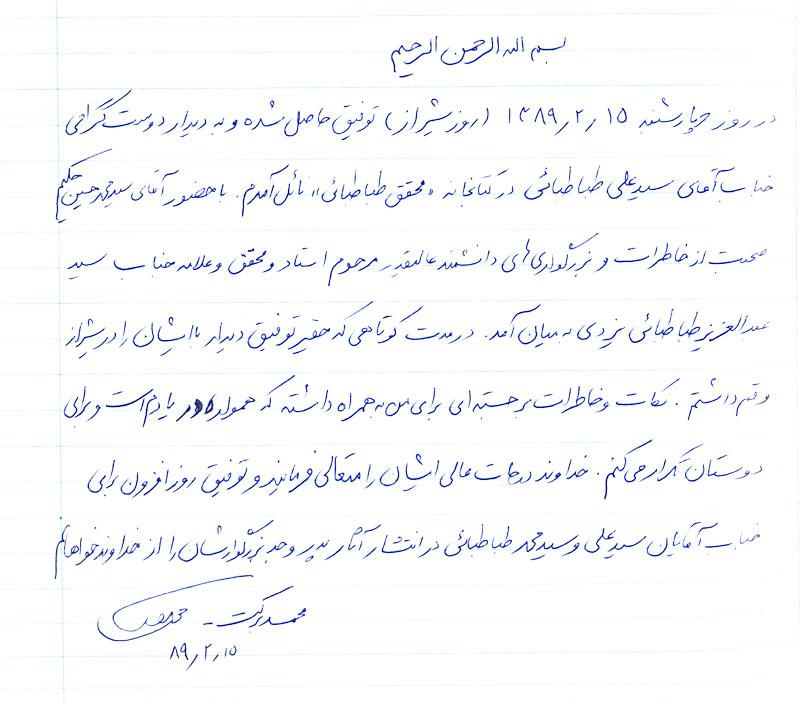 بسم الله الرحمن الرحیم
در روز چهارشنبه ۱۳۸۹/۲/۱۵ (روز شیراز) توفیق حاصل شده و به دیدار دوست گرامی
جناب آقای سید علی طباطبائی در کتابخانه «محقق طباطبائی» نائل آمدم. با حضور آقای سید محمد حسین حکیم
صحبت از خاطرات و بزرگواری‌های دانشمند عالیقدر مرحوم استاد و محقق و علامه جناب سید
عبدالعزیز طباطبائی یزدی به میان آمد. در مدت کوتاهی که حقیر توفیق دیدار با ایشان را در شیراز
و قم داشتم. نکات و خاطرات برجسته ای برای من به همراه داشته که همواره در یادم است و برای
دوستان تکرار می‌کنم. خداوند درجات عالی ایشان را متعالی فرمایند و توفیق روز افزون برای
جناب آقایان سید علی و سید محمد طباطبائی در انتشار آثار پدر و جد بزرگوارشان را از خداوند خواهانم
محمد برکت -
۸۹/۲/۱۵